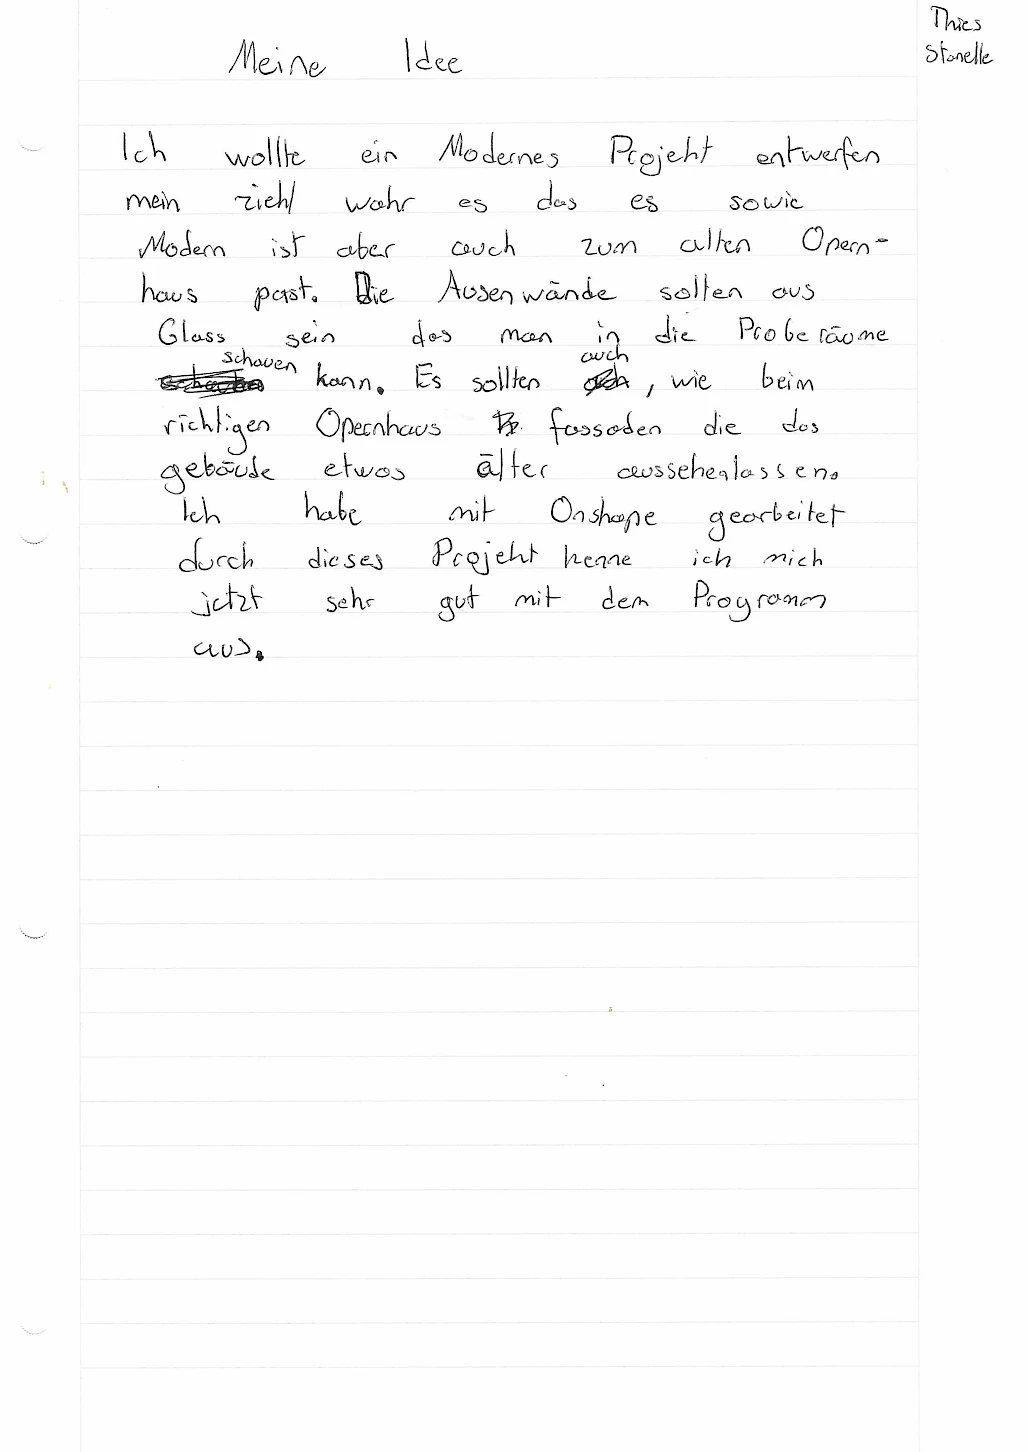 Thies
Stanelle
Meine Idee
Ich wollte ein Modernes Projekt entwerfen
mein ziehl wahr es das es sowie
Modern ist aber auch zum alten Opern-
haus past. Die Ausenwände sollten aus
Glass sein das man in die Proberäume
schauen kann. Es sollten auch, wie beim
richtigen Opernhaus fassaden die das
gebäude etwas älter aussehenlassen.
Ich habe mit Onshape gearbeitet
durch dieses Projekt kenne ich mich
jetzt sehr gut mit dem Programm
aus.